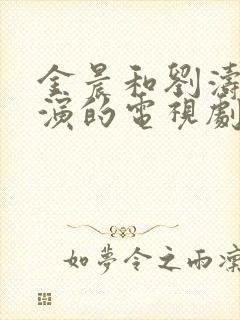 金晨和劉濤
演的電視劇
如夢令之雨濛